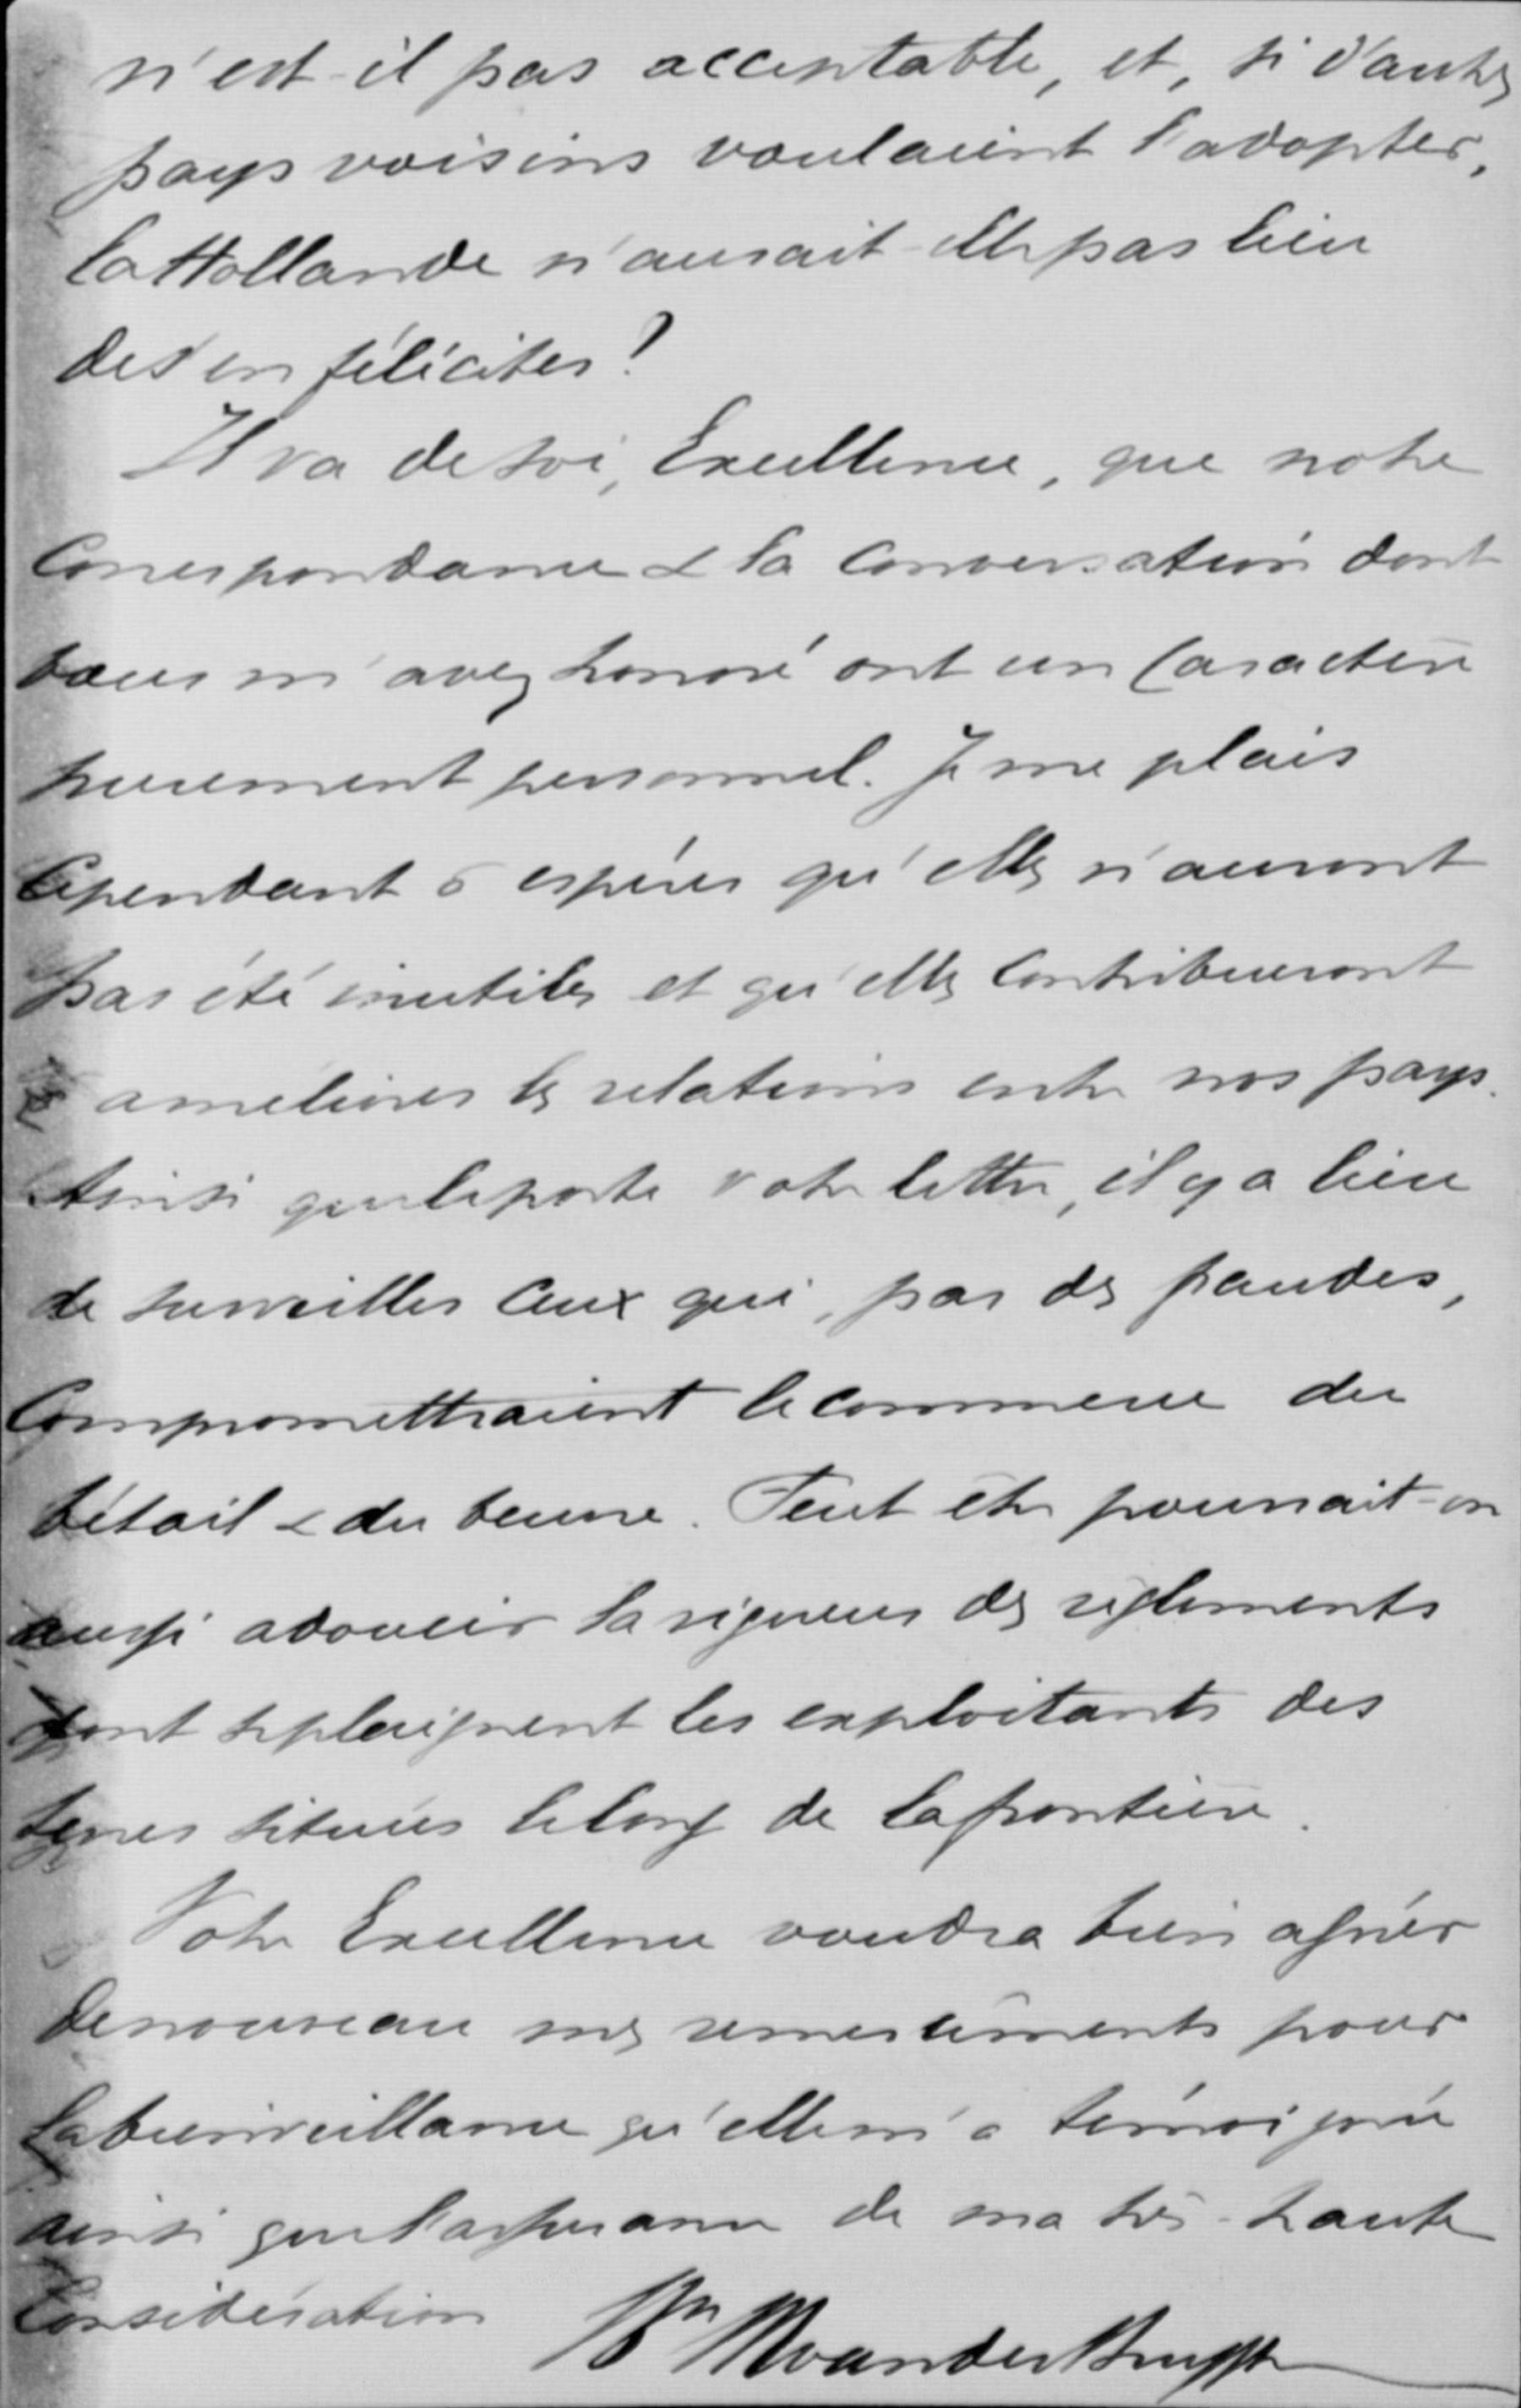 n'est-il pas acceptable, et, si d'autres
pays voisins voulaient l'adopter,
la Hollande n'aurait-elle pas lieu
de s'en féliciter?
Il va de soi, Excellence, que notre
Correspondance & la Conversation dont
vous m'avez honoré ont un Caractère
purement personnel. Je me plais
Cependant à espérer qu'elles n'auront
pas été inutiles et qu'elles Contribueront
à améliorer les relations entre nos pays.
Ainsi que le porte votre lettre, il y a lieu
de surveiller Ceux qui, par des fraudes,
Compromettraient le Commerce du
bétail & du beurre. Peut être pourrait-on
aussi adoucir la rigueur des règlements
dont se plaignent les exploitants des
terres situées le long de la frontière.
Votre Excellence voudra bien agréer
de nouveau mes remerciements pour
la bienveillance qu'elle m'a témoignée
ainsi que l'assurance de ma très-haute
Considération
Bn MvanderBruggen